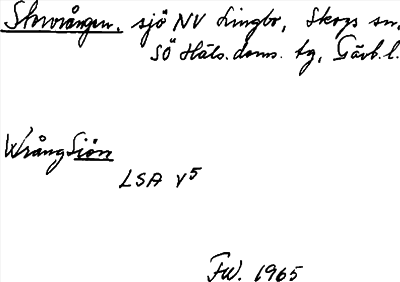 Storvrången, sjö NV Lingbo, Skogs sn,
SÖ Häls. doms. tg, Gävb. l.
Wrång Siön
LSA Y5
FW. 1965